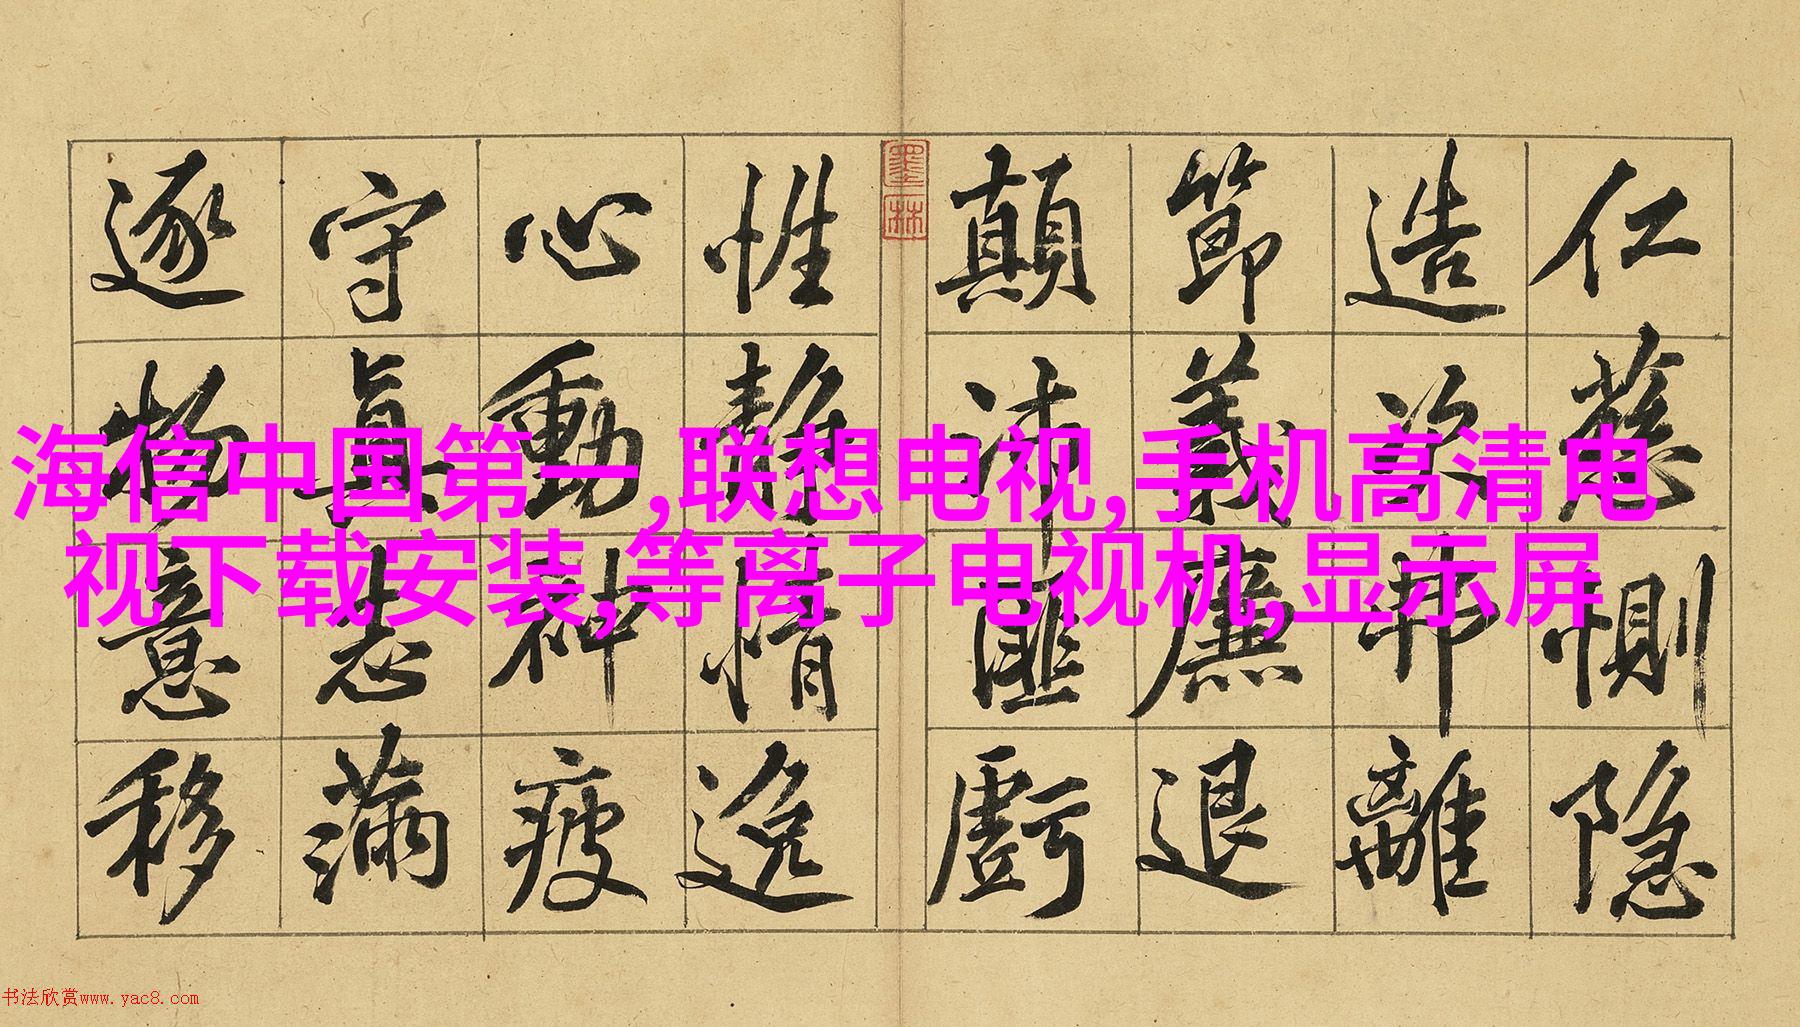 仁慈惻隱
造次弗離
節義廉退
顛沛匪虧
墨林
性靜情逸
心動神疲
守真志滿
逐物意移
海信中国第一,联想电视,手机高清电
视下载安装,等离子电视机,显示屏
书法欣赏www.yac8.com